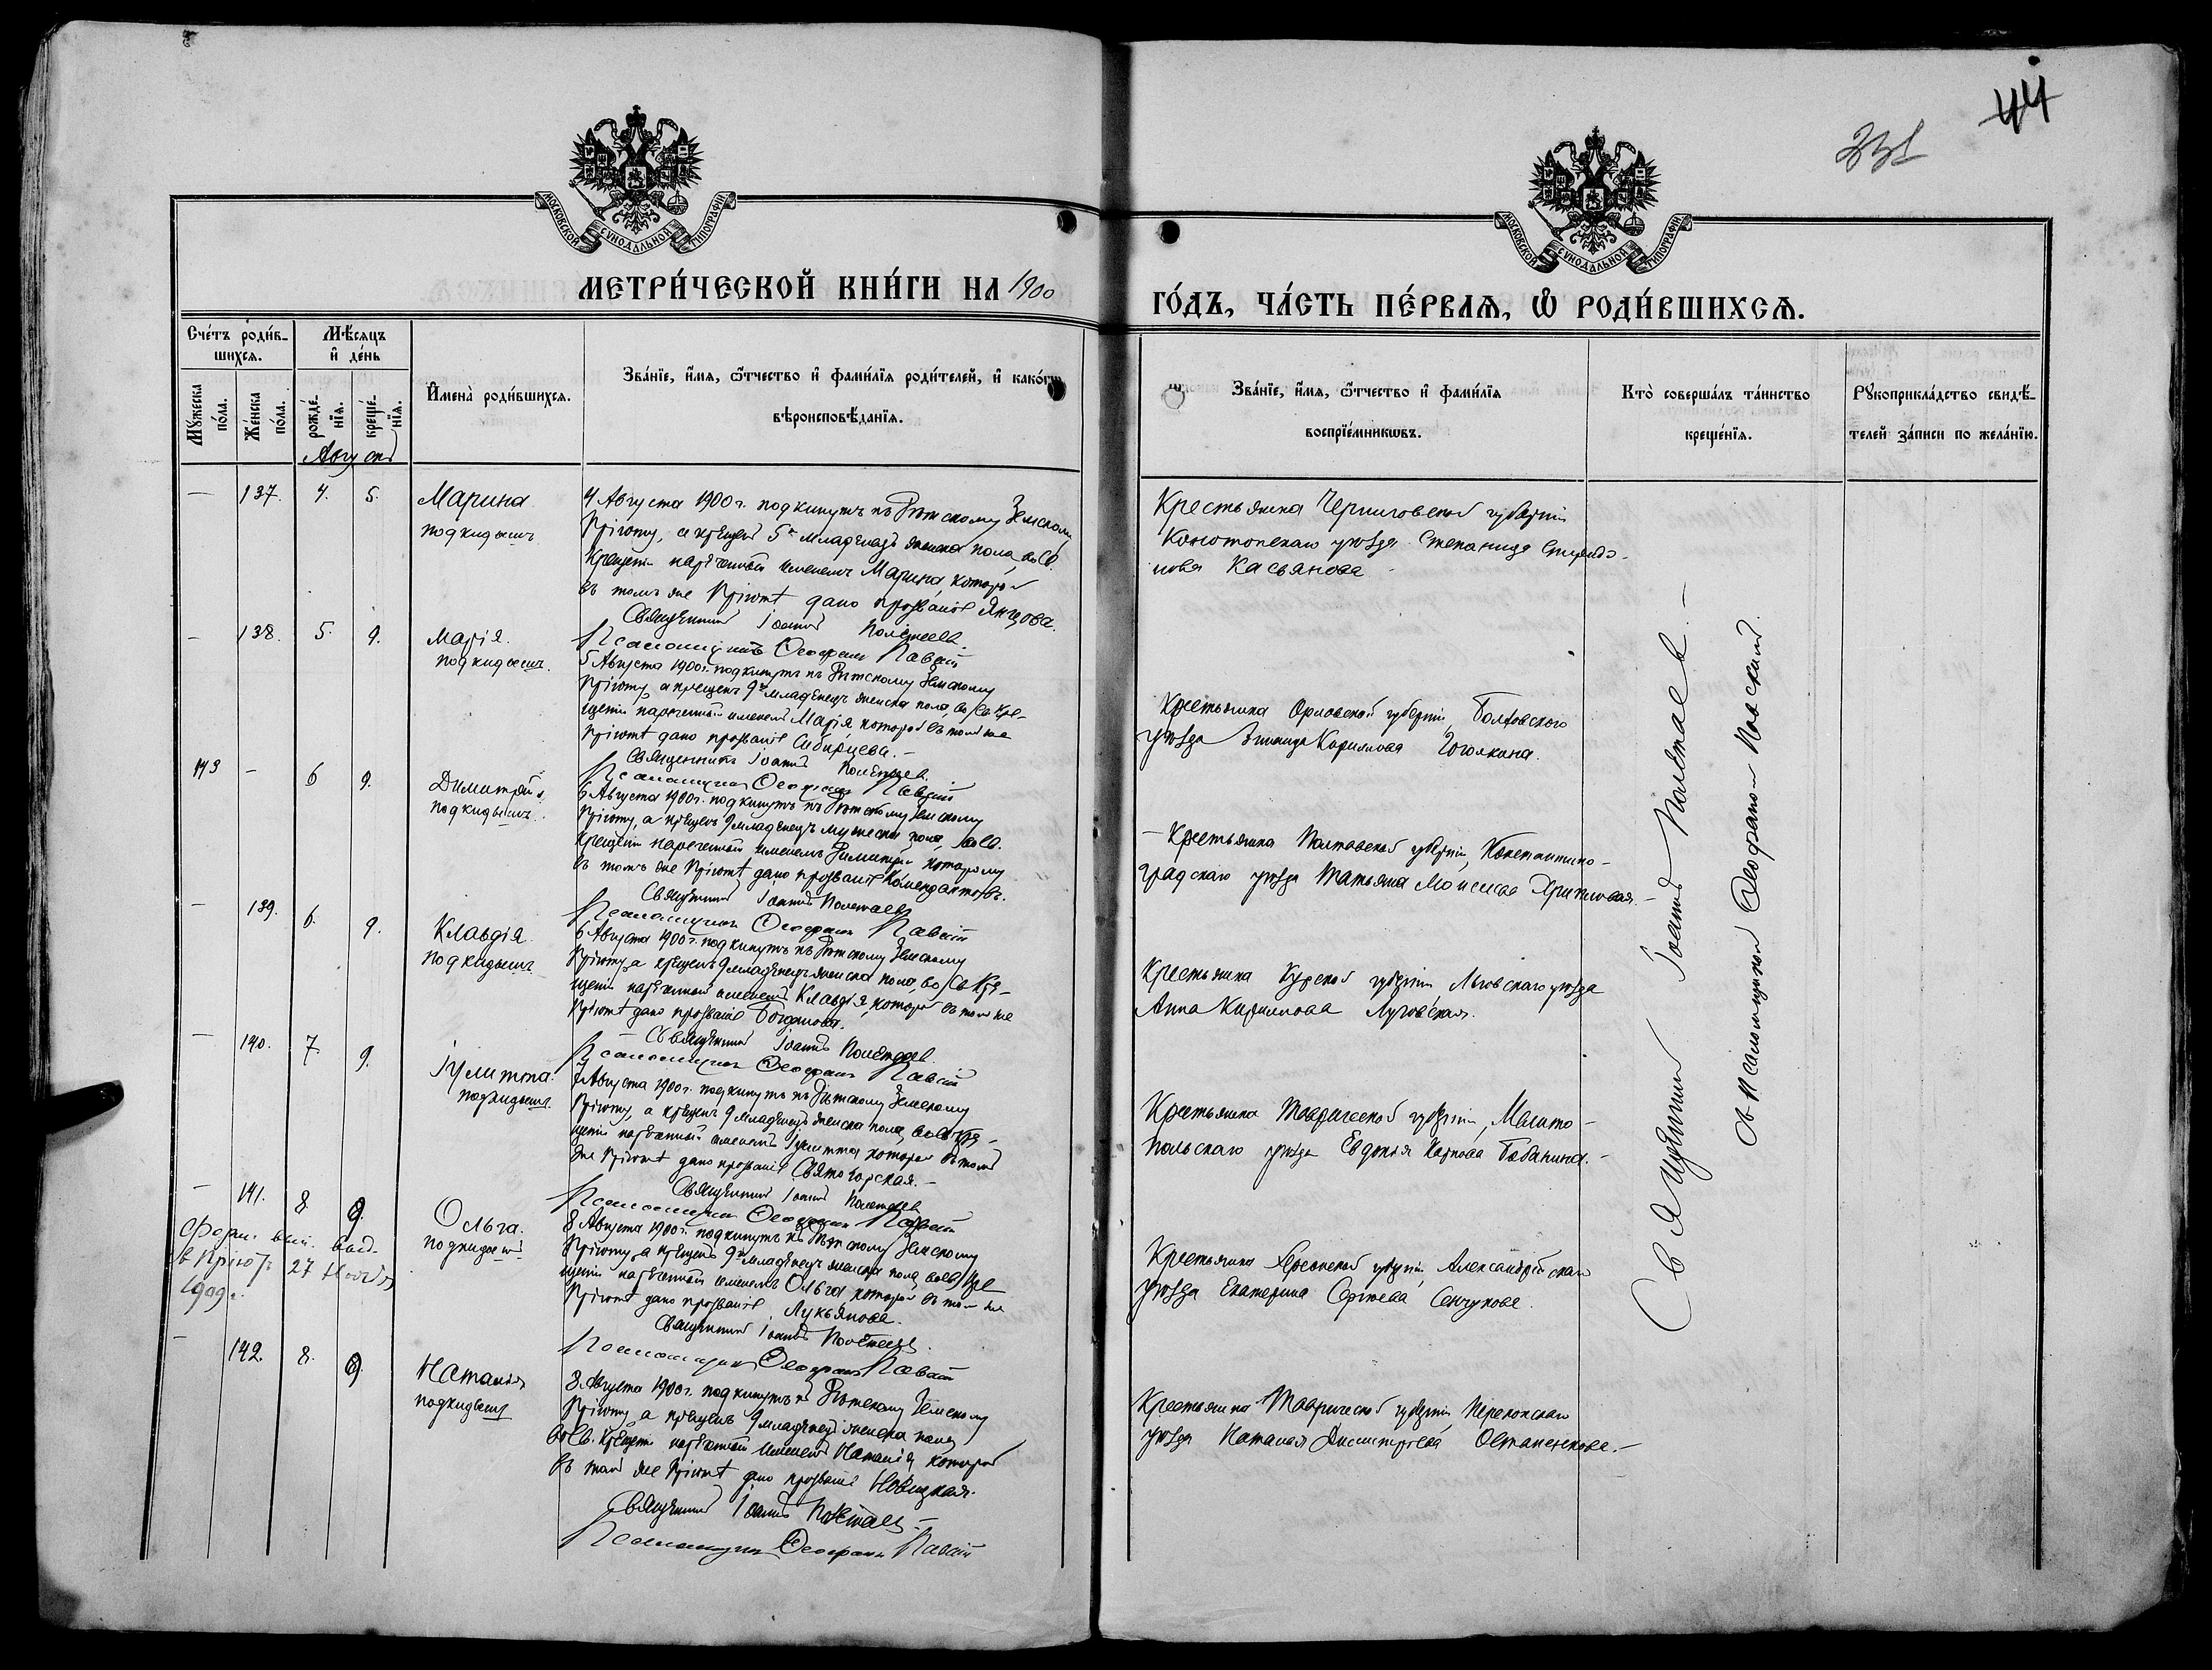 44
331
МОСКОВСКОЙ СѴНОДАЛЬНОЙ ТИПОГРАФІИ
МОСКОВСКОЙ СѴНОДАЛЬНОЙ ТИПОГРАФІИ
МЕТРИ́ЧЕСКОЙ КНИ́ГИ НА 1900
ГО́ДЪ, ЧА́СТЬ ПЕ́РВАѦ, Ѡ҆ РОДИ́ВШИХСѦ.
Сче́тъ роди́в-
шихсѧ.
Мꙋ́жеска по́ла.
Же́нска по́ла.
Мѣ́сѧцъ и҆ де́нь
рожде́-нїѧ.
креще́-нїѧ.
И҆мена̀ роди́вшихсѧ.
Зва́нїе, и҆́мѧ, ѻ҆́тчество и҆ фами́лїѧ роди́телей, и҆ како́гѡ
вѣроисповѣ́данїѧ.
Зва́нїе, и҆́мѧ, ѻ҆́тчество и҆ фами́лїѧ
воспрїе́мникѡвъ.
Кто̀ соверша́лъ та́инство
креще́нїѧ.
Рꙋкоприкла́дство свидѣ́-
телей за́писи по жела́нїю.
Августъ
— 137. 4. 5.
Марина
подкидышъ
4 Августа 1900 г. подкинутъ къ Рѣтскому Земскому
Пріюту, а крещенъ 5го младенецъ женска пола, во Св.
Крещеніи нареченный именемъ Марина, которой
въ томъ же Пріютѣ дано прозваніе Янцова.
Священникъ Іоаннъ Полетаевъ
Псаломщикъ Ѳеофанъ
Крестьянка Черниговской губерніи
Конотопскаго уѣзда Степанида
Касьянова
— 138. 5. 9.
Марія.
подкидышъ.
5 Августа 1900 г. подкинутъ къ Рѣтскому Земскому
Пріюту, а крещенъ 9го младенецъ женска пола, во Св. Кре-
щеніи нареченный именемъ Марія, которой въ томъ же
Пріютѣ дано прозваніе Сибирцева. —
Священникъ Іоаннъ Полетаевъ.
Псаломщикъ Ѳеофанъ
Крестьянка Орловской губерніи, Болховского
уѣзда Кириллова
143 — 6 9.
Димитрій
подкидышъ.
6 Августа 1900 г. подкинутъ къ Рѣтскому Земскому
Пріюту, а крещенъ 9 младенецъ мужеска пола, во Св.
Крещеніи нареченный именемъ Димитрій которому
въ томъ же Пріютѣ дано прозваніе Комендантовъ.
Священникъ Іоаннъ Полетаевъ
Псаломщикъ Ѳеофанъ
— Крестьянка Полтавской губерніи, Константино-
градскаго уѣзда Татьяна Моисеева —
— 139. 6. 9.
Клавдія.
подкидышъ
6 Августа 1900 г. подкинутъ къ Рѣтскому Земскому
Пріюту, а крещенъ 9 младенецъ женска пола, во Св. Кре-
щеніи нареченный именемъ Клавдія, которой въ томъ же
Пріютѣ дано прозваніе Богданова.
Священникъ Іоаннъ Полетаевъ
Псаломщикъ Ѳеофанъ
Крестьянка Курской губерніи Льговскаго уѣзда
Анна Кириллова Луговская.
— 140. 7. 9.
Іулитта.
подкидышъ.
7 Августа 1900 г. подкинутъ къ Рѣтскому Земскому
Пріюту, а крещенъ 9 младенецъ женска пола, во Св. Кре-
щеніи нареченный именемъ Іулитта которой въ томъ
же Пріютѣ дано прозваніе Святогорская. —
Священникъ Іоаннъ Полетаевъ
Псаломщикъ Ѳеофанъ
Крестьянка Таврической губерніи, Мелито-
польскаго уѣзда Евдокія Карпова Бабанина. —
— 141. 8. 9.
Ольга.
подкидышъ
вып. выд.
въ Пріютъ 27 Ноября
1909 г.
8 Августа 1900 г. подкинутъ къ Рѣтскому Земскому
Пріюту, а крещенъ 9го младенецъ женска пола, во Св. Кре
щеніи нареченный именемъ Ольга которой въ томъ же
Пріютѣ дано прозваніе Лукьянова.
Священникъ Іоаннъ Полетаевъ.
Псаломщикъ Ѳеофанъ
Крестьянка Херсонской губерніи, Александрійскаго
уѣзда Екатерина Сергѣева
— 142. 8. 9.
Наталія
подкидышъ
8 Августа 1900 г. подкинутъ къ Рѣтскому Земскому
Пріюту, а крещенъ 9 младенецъ женска пола,
во Св. Крещеніи нареченный именемъ Наталія, которой
въ томъ же Пріютѣ дано прозваніе Новицкая.
Священникъ Іоаннъ Полетаевъ —
Псаломщикъ Ѳеофанъ
Крестьянка Таврической губерніи, Перекопскаго
уѣзда Наталья Димитріева —
Священникъ Іоаннъ Полетаевъ —
съ Псаломщикомъ Ѳеофаномъ